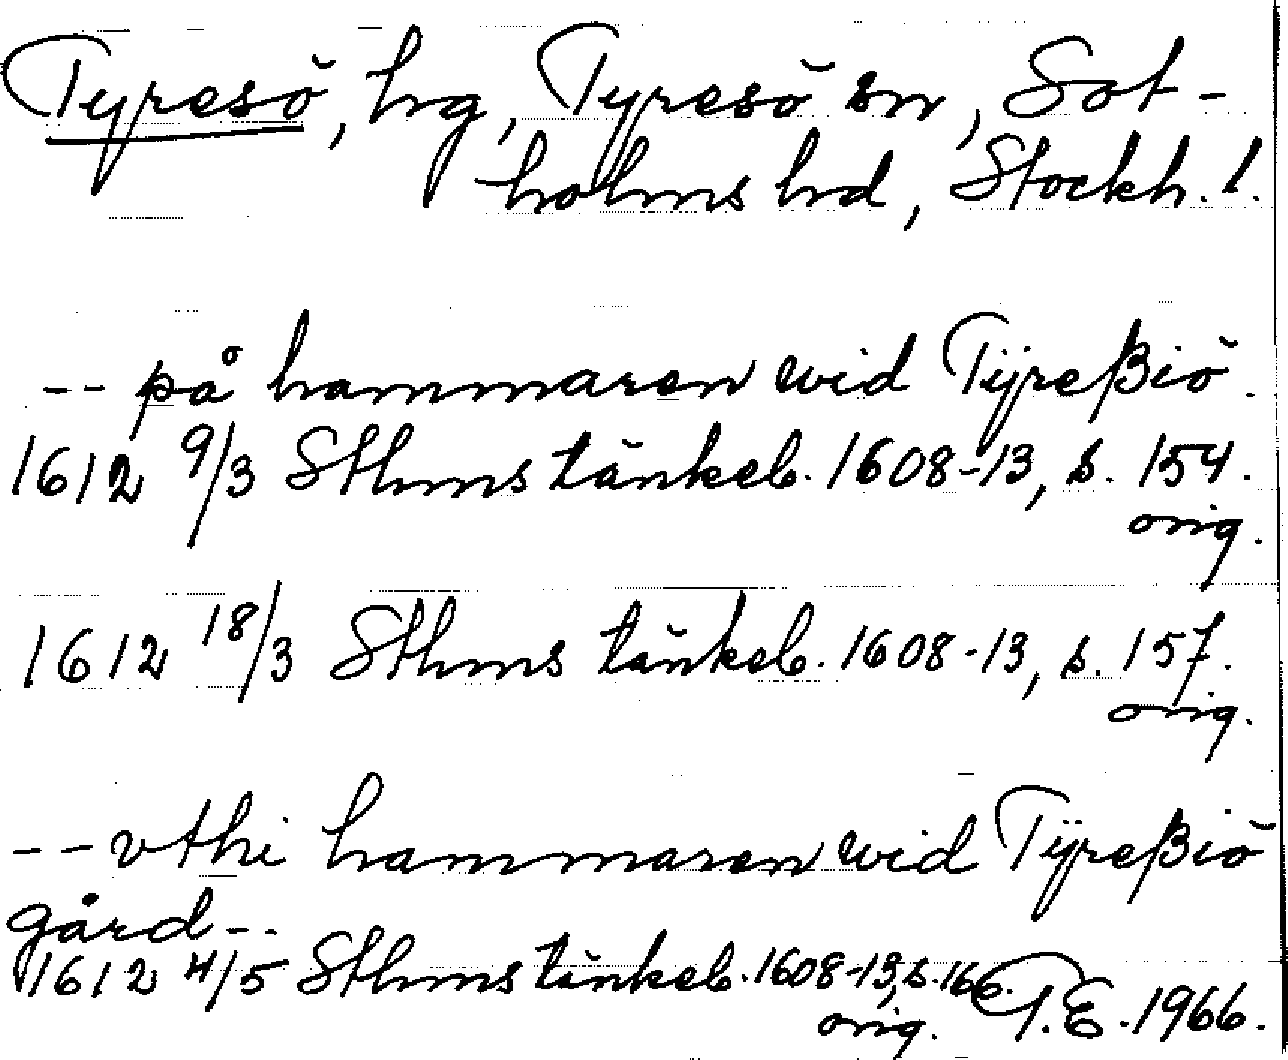 Tyresö, hg, Tyresö sn, Sot-
holms hd, Stockh. l.
-- på hammaren wid Tÿreßiö.
1612 9/3 Sthms tänkeb. 1608-13, s. 154.
orig.
1612 18/3 Sthms tänkeb. 1608-13, s. 157.
orig.
-- vthi hammaren wid Tÿreßiö
gård --
1612 4/5 Sthms tänkeb. 1608-13, s. 166.
orig. T.E. 1966.